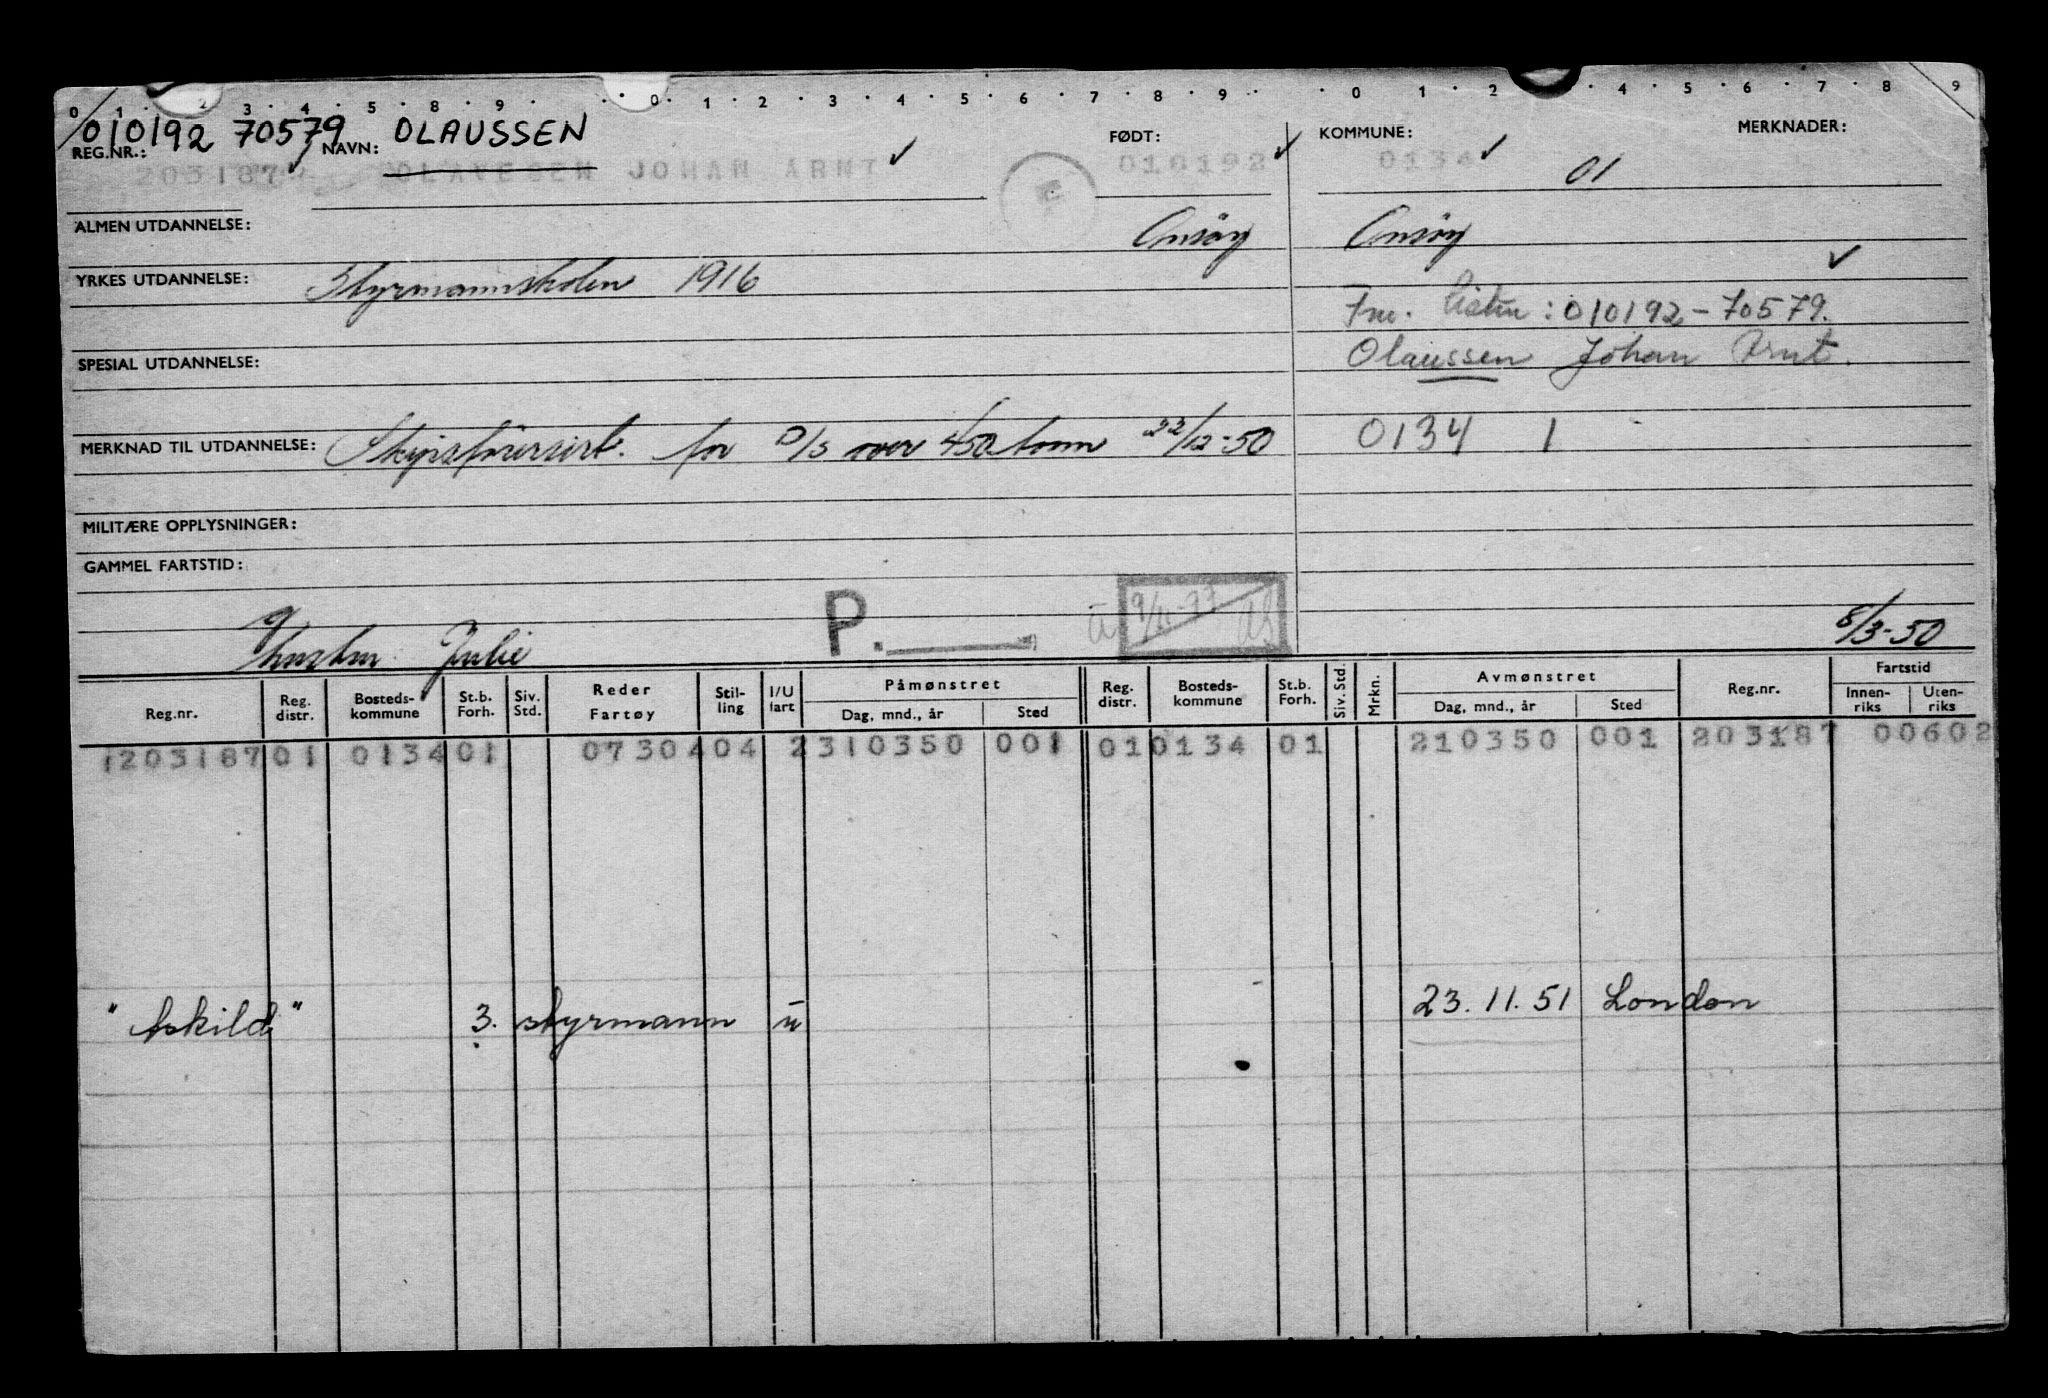 0 1 2 3 4 5 8 9 0 1 2 3 4 5 6 7 8 9 0 1 2 4 5 6 7 8 9
010192 70579 OLAUSSEN
REG.NR.: NAVN: FØDT: KOMMUNE: MERKNADER:
203187 OLAVESEN JOHAN ARNT 010192 0134 01
ALMEN UTDANNELSE: Onsöy Onsöy
YRKES UTDANNELSE: Styrmannskolen 1916
Fnr. listen: 010192-70579.
SPESIAL UTDANNELSE: Olaussen Johan Arnt.
MERKNAD TIL UTDANNELSE: Skipsförersert. for D/S over 450 tonn 22/12-50 0134 1
MILITÆRE OPPLYSNINGER:
GAMMEL FARTSTID:
Julie P. 9/11-77 8/3-50
Reg.nr. Reg. distr. Bosteds-kommune St.b. Forh. Siv. Std. Reder Fartøy Stil-ling I/U fart Påmønstret Dag, mnd., år Sted Reg. distr. Bosteds-kommune St.b. Forh. Siv. Std. Mrkn. Avmønstret Dag, mnd., år Sted Reg.nr. Fartstid Innen-riks Uten-riks
1203187 01 0134 01 07304 04 2 310350 001 01 0134 01 210350 001 203187 00602
"Askild" 3. styrmann u 23.11.51 London